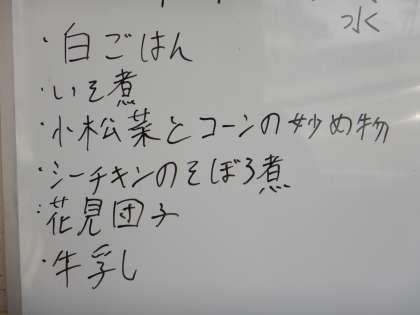 水
・白ごはん
・いそ煮
・小松菜とコーンの炒め物
・シーチキンのそぼろ煮
・花見団子
・牛乳